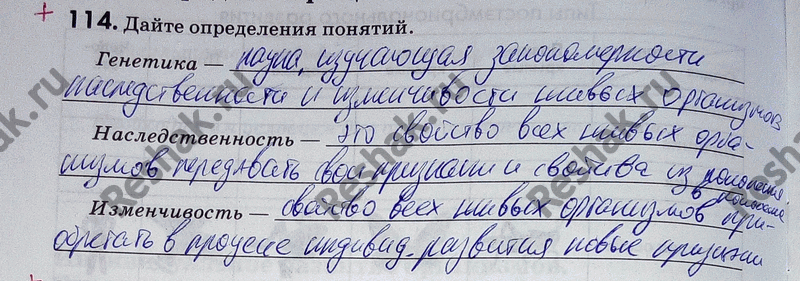 114. Дайте определения понятий.
Генетика — наука, изучающая закономерности
наследственности и изменчивости живых организмов
Наследственность — это свойство всех живых орга-
низмов передавать свои признаки и свойства из поколения
в поколение
Изменчивость — свойство всех живых организмов при-
обретать в процессе индивид. развития новые признаки
Reshak.ru